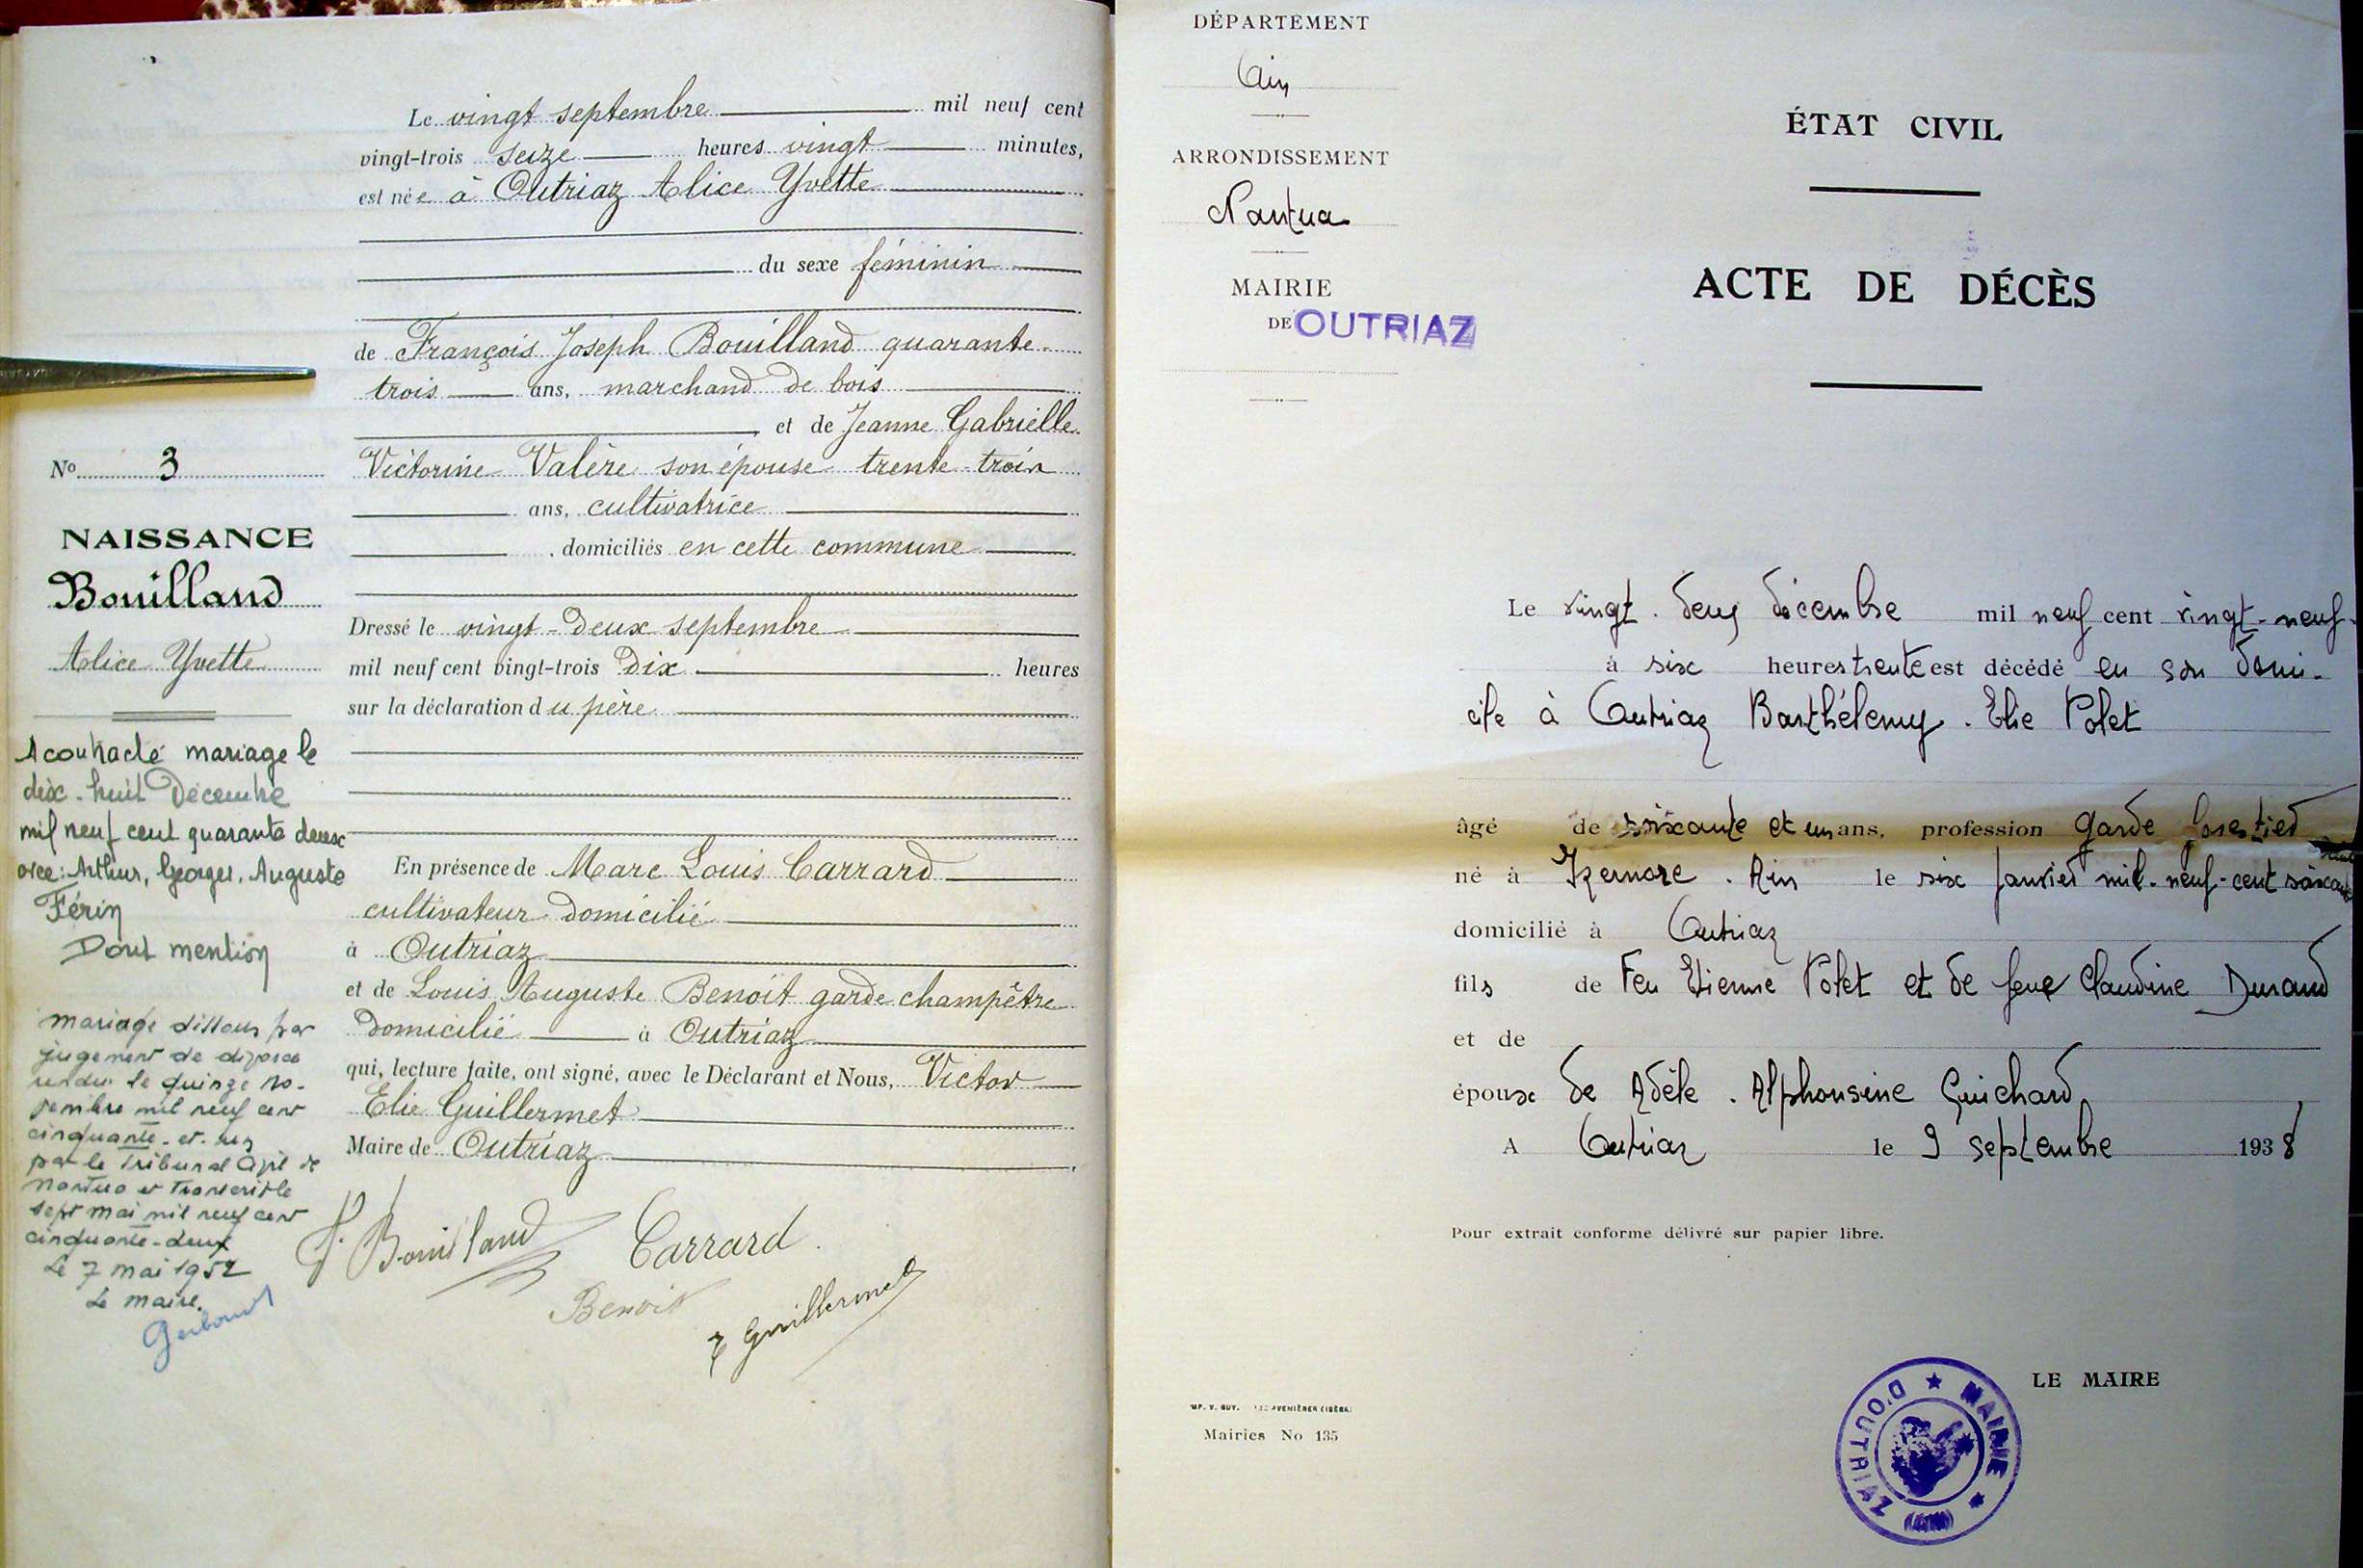 Le vingt septembre mil neuf cent
vingt-trois seize heures vingt minutes,
est née à Outriaz Alice Yvette
du sexe féminin
de François Joseph Bouilland quarante
trois ans, marchand de bois
et de Jeanne Gabrielle
Victorine Valère son épouse trente-trois
ans, cultivatrice
, domiciliés en cette commune
Dressé le vingt-deux septembre
mil neuf cent vingt-trois dix heures
sur la déclaration du père
En présence de Marc Louis Carrard
cultivateur domicilié
à Outriaz
et de Louis Auguste Benoit garde champêtre
domicilié à Outriaz
qui, lecture faite, ont signé, avec le Déclarant et Nous, Victor
Elie Guillermet
Maire de Outriaz
F. Bouilland Carrard
Benoit
E Guillermet
No 3
NAISSANCE
Bouilland
Alice Yvette
A contracté mariage le
dix-huit Décembre
mil neuf cent quarante deux
avec: Arthur, Georges, Auguste
Férin
Dont mention
mariage dissous par
jugement de divorce
rendu le quinze no-
vembre mil neuf cent
cinquante-et-un
par le Tribunal Civil de
Nantua et transcrit le
sept mai mil neuf cent
cinquante-deux
Le 7 mai 1952
Le maire.
DÉPARTEMENT
Ain
ARRONDISSEMENT
Nantua
MAIRIE
DE OUTRIAZ
ÉTAT CIVIL
ACTE DE DÉCÈS
Le vingt-deux décembre mil neuf cent vingt-neuf
à six heures trente est décédé en son domi-
cile à Outriaz Barthélemy. Elie Polet
âgé de soixante et un ans, profession garde forestier
né à Izernore. Ain le six janvier mil-neuf-cent soixante
domicilié à Outriaz
fils de Feu Etienne Polet et de feue Claudine Durand
et de
époux de Adèle. Alphonsine Guichard
A Outriaz le 9 septembre 1938
Pour extrait conforme délivré sur papier libre.
LE MAIRE
MAIRIE D'OUTRIAZ
(AIN)
Mairies No 135